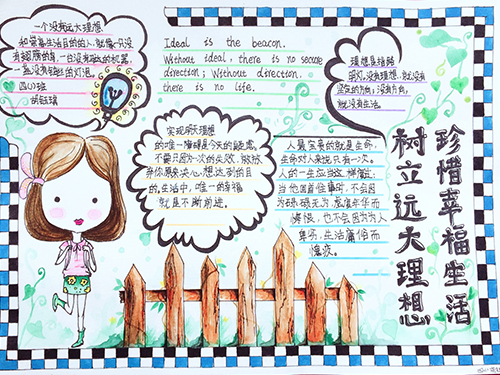 一个没有远大理想
和崇高生活目的的人,就像一只没
有翅膀的鸟,一台没有马达的机器,
一盏没有钨丝的灯泡。
四(1)班
Ideal is the beacon.
Without ideal, there is no secure
direction; Without direction,
there is no life.
理想是指路
明灯,没有理想,就没有
坚定的方向;没有方向,
就没有生活。
实现明天理想
的唯一障碍是今天的疑虑。
不要只因为一次的失败,就放
弃你原来决心想达到的目
的。生活中,唯一的幸福
就是不断前进。
人最宝贵的就是生命,
生命对人来说只有一次。
人的一生应当这样度过:
当他回首往事时,不会因
为碌碌无为,虚度年华而
悔恨,也不会因为为人
卑劣,生活庸俗而
愧疚。
珍惜幸福生活
树立远大理想